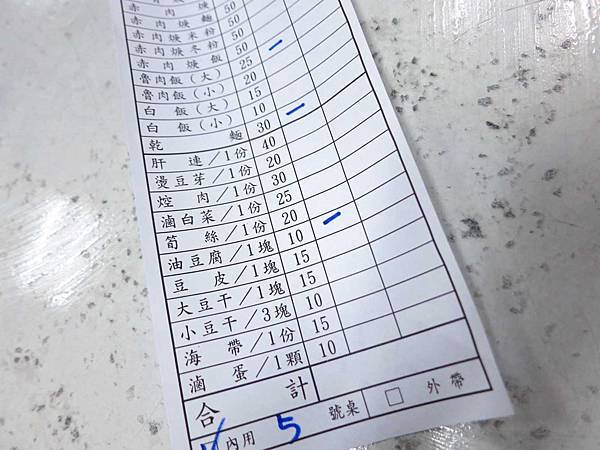 赤肉焿 50
赤肉焿麵 50
赤肉焿米粉 50
赤肉焿冬粉 50
赤肉焿飯 50
魯肉飯(大) 25 一
魯肉飯(小) 20
白飯(大) 15
白飯(小) 10
乾麵 30 一
肝連/1份 40
燙豆芽/1份 20
焢肉 30
滷白菜/1份 25
筍絲/1份 20
油豆腐/1塊 10 一
豆皮/1塊 15
大豆干/1塊 15
小豆干/3塊 10
海帶/1份 15
滷蛋/1顆 10
合計
內用 5 號桌 □ 外帶